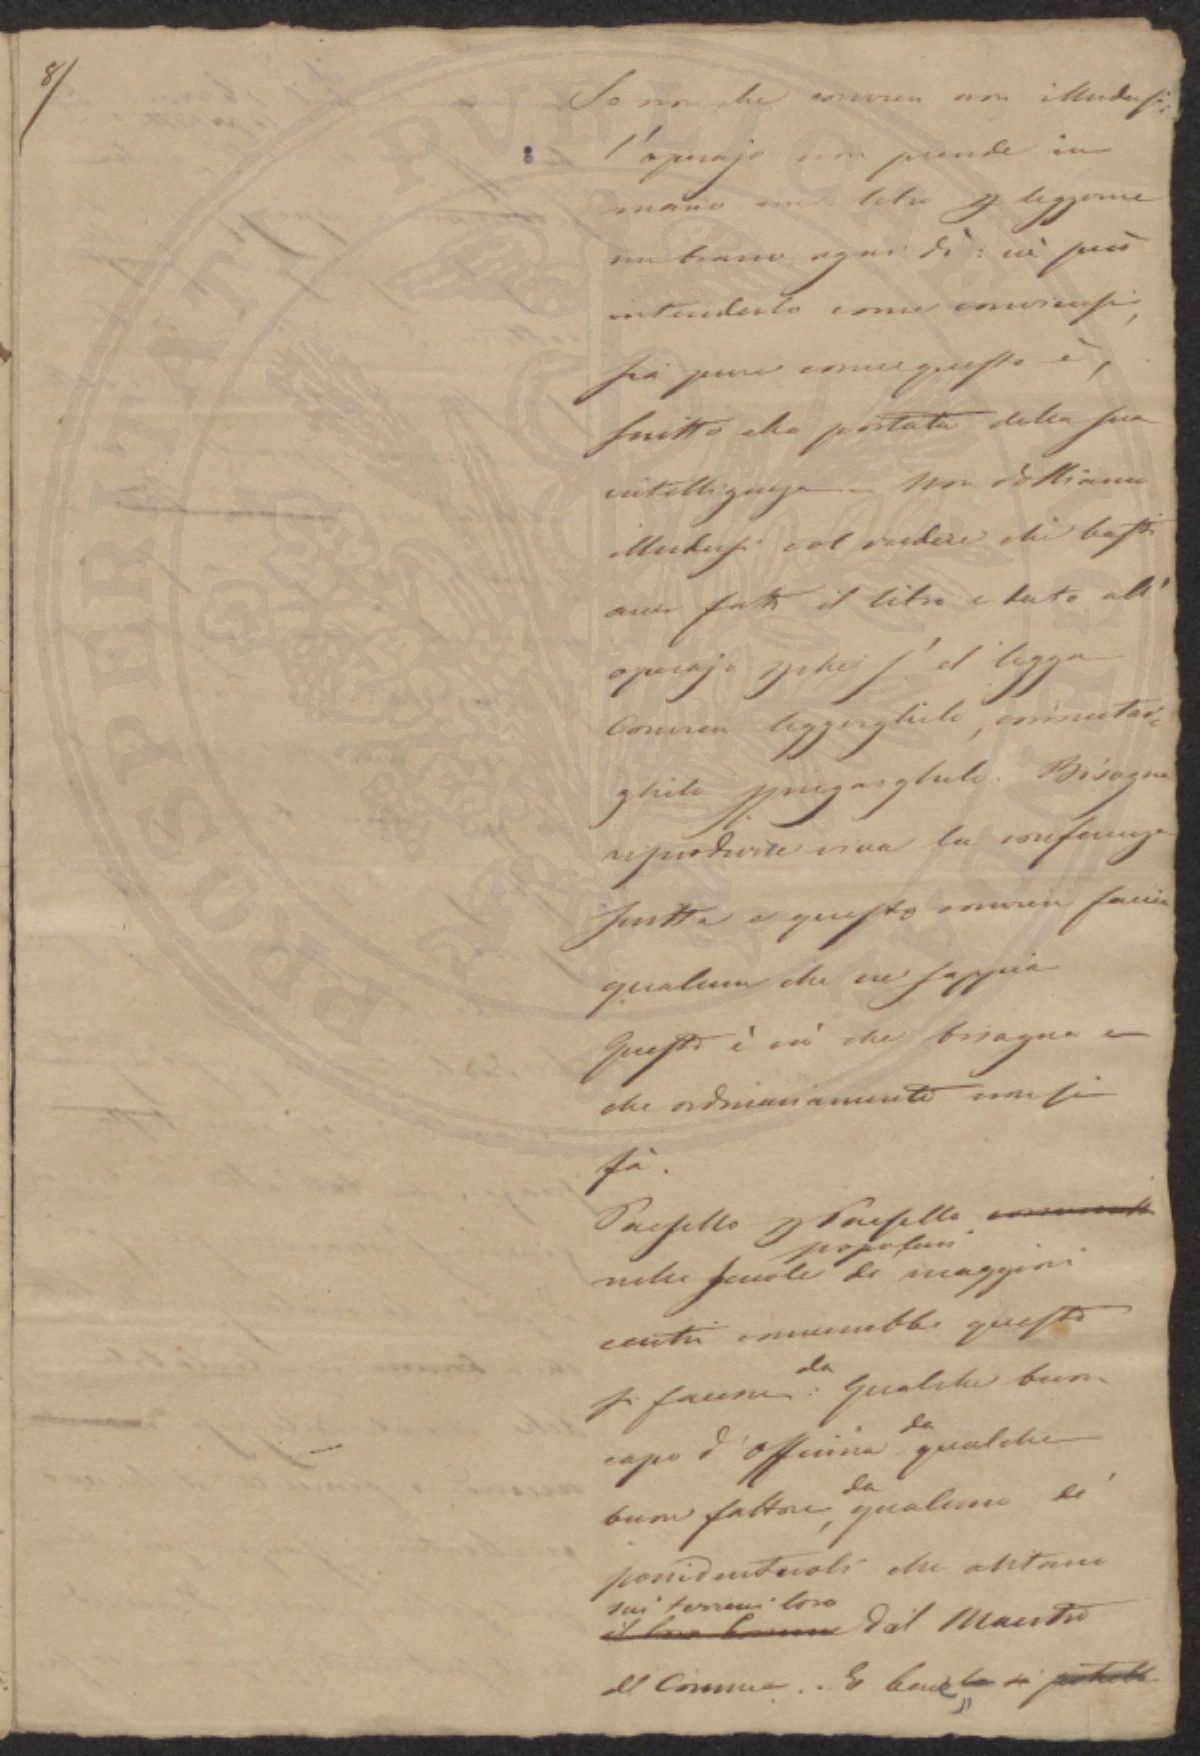 8/
Se non che convien non illudersi:
8 l'operajo non prende in
mano un libro p leggerne
un brano ogni dì: nè può
intenderlo come conviensi,
sia pure come questo è,
scritto alla portata della sua
intelligenza - Non dobbiamo
illudersi col credere che basti
aver fatto il libro e dato all'
operajo pchè s' el legga
Convien leggerglielo, comentar-
glielo spiegarglielo. Bisogna
riprodurre viva la conferenza
scritta e questo convien faccia
qualcuno che ne sappia
Questo è ciò che bisogna e
che ordinariamente non si
fà.
Paesello p Paesello
popolari
nelle scuole de maggiori
centri converrebbe questo
da
si facesse: Qualche buon
da
capo d'officina qualche
da
buon fattore, qualcuno de'
possidentucoli che abitano
sui terreni loro
il loro Comune dal Maestro
del Comune .. E bene la si potrebbe